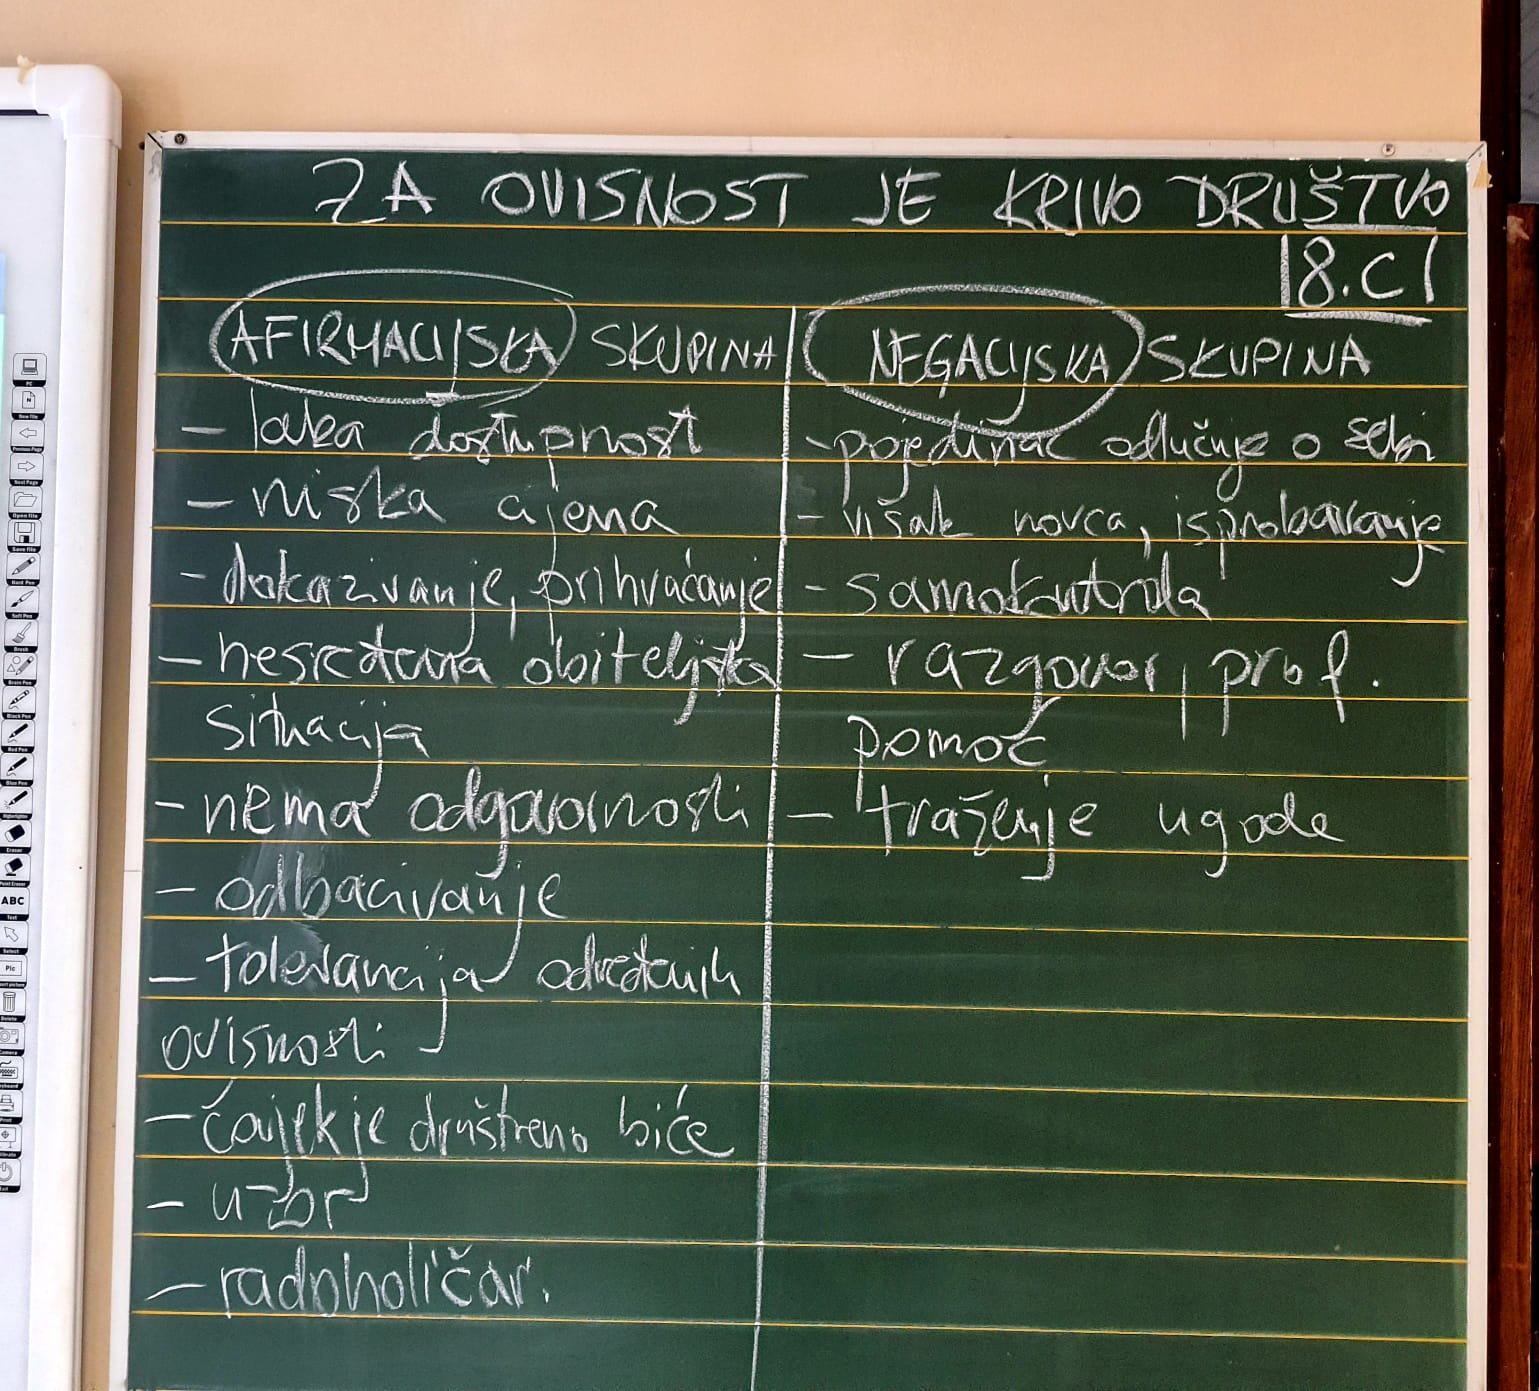 ZA OVISNOST JE KRIVO DRUŠTVO
8.C
AFIRMACIJSKA SKUPINA
- laka dostupnost
- niska cijena
- dokazivanje, prihvaćanje
- nesređena obiteljska
situacija
- nema odgovornosti
- odbacivanje
- tolerancija određenih
ovisnosti
- čovjek je društveno biće
- uzor
- radoholičar.
NEGACIJSKA SKUPINA
- pojedinac odlučuje o sebi
- višak novca, isprobavanje
- samokontrola
- razgovor, prof.
pomoć
- traženje ugode
PC
New File
Previous Page
Next Page
Open file
Save file
Hard Pen
Soft Pen
Brush
Black Pen
Red Pen
Blue Pen
Highlighter
Eraser
ABC
Text
Select
Pic
Delete
Camera
Print